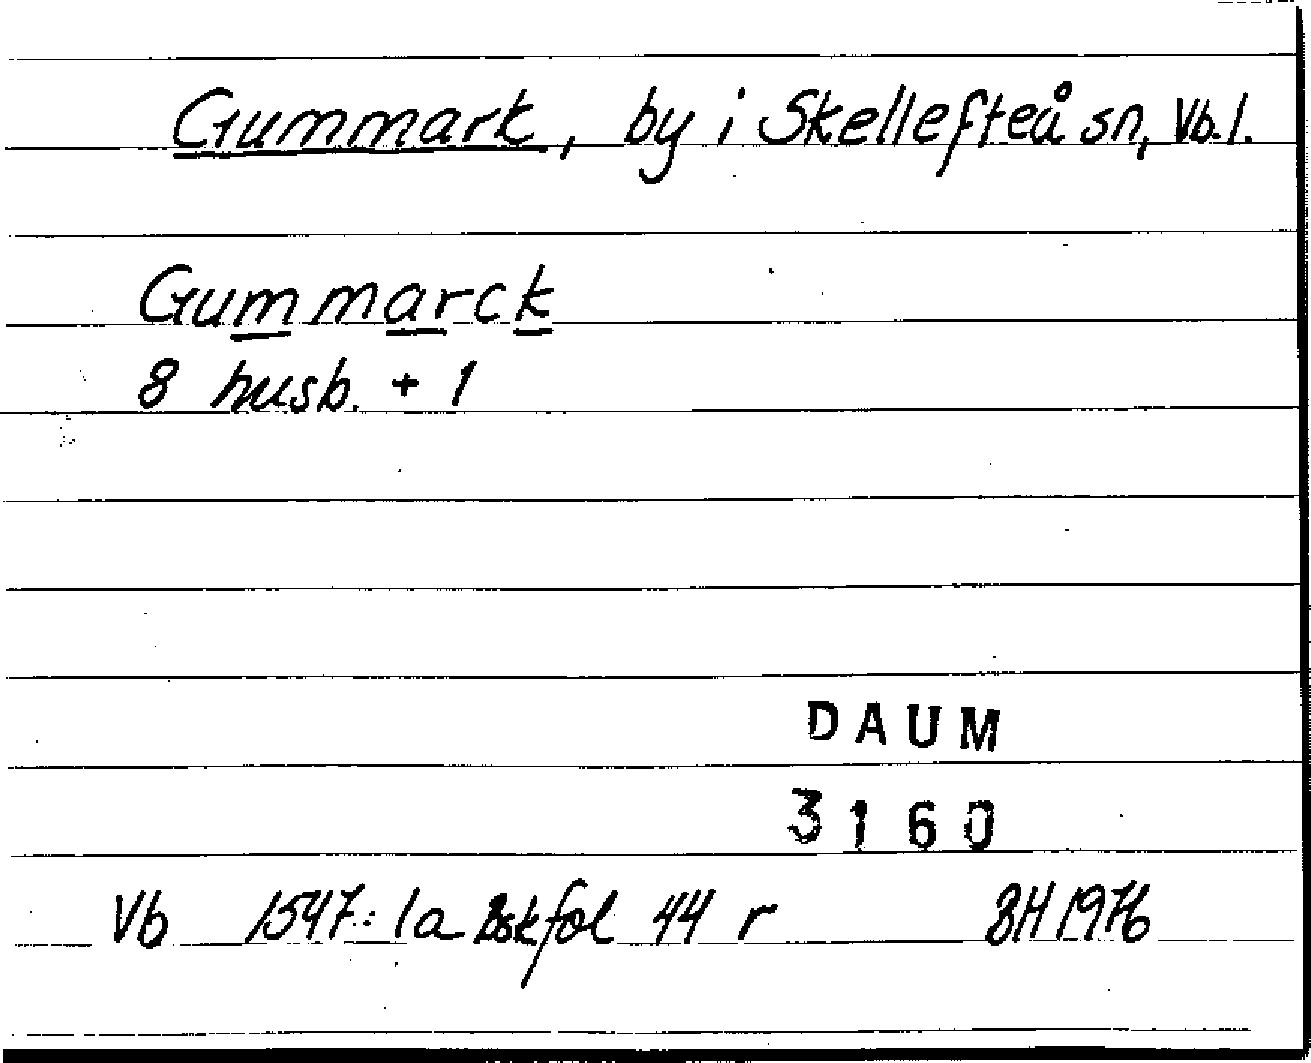 Gummark, by i Skellefteå sn, Vb.l.
Gummarck
8 husb. + 1
DAUM
3160
Vb 1547:1a Bskfol 44 r BH 1976